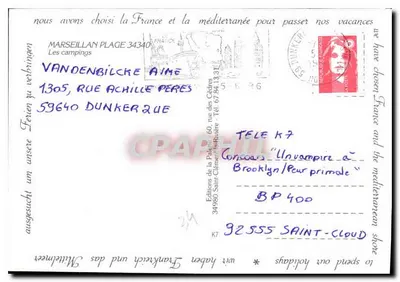 nous avons choisi la France et la méditerranée pour passer nos vacances
MARSEILLAN PLAGE 34340
Les campings
VANDENBILCKE AIME
1305, RUE ACHILLE PERES
59640 DUNKERQUE
TELE K7
Concours "Un vampire à
Brooklyn/Peur primale"
BP 400
92555 SAINT-CLOUD
we have chosen France and the mediterranean shore
to spend our holidays
*
wir haben Frankreich und das Mittelmeer
ausgesucht um unsere Ferien zu verbringen
Editions de la Palme, 60, rue des Cèdres
34980 Saint-Clément-la-Rivière - Tél. 67 84
K7